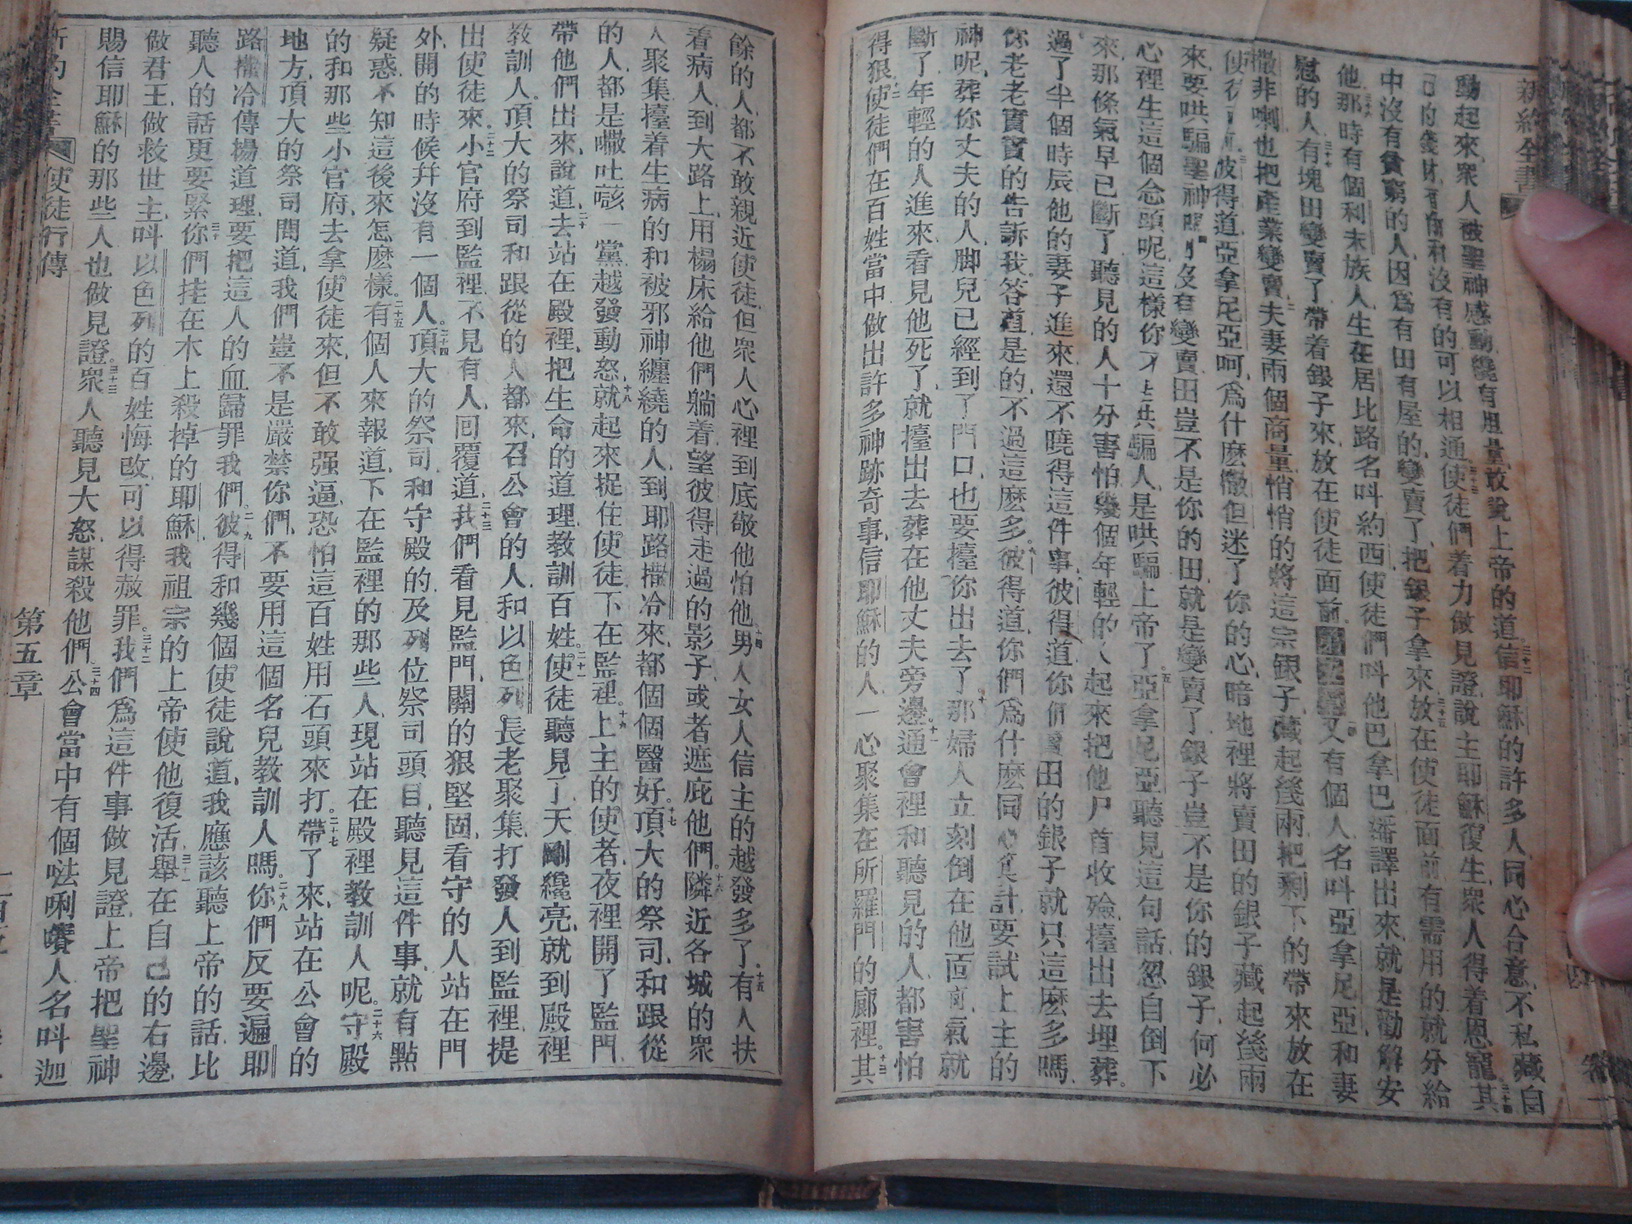 新約全書
動起來衆人被聖神感動纔有胆量敢說上帝的道三十二信耶穌的許多人同心合意不私藏自
的可以相通三十三使徒們着力做見證說主耶穌復生衆人得着恩寵三十四其
中沒有貧窮的人因爲有田有屋的變賣了把銀子拿來三十五放在使徒面前有需用的就分給
他三十六那時有個利未族人生在居比路名呌約西使徒們呌他巴拿巴繙譯出來就是勸解安
慰的人三十七有塊田變賣了帶着銀子來放在使徒面前又有個人名呌亞拿尼亞和妻
撒非喇也把產業變賣二夫妻兩個商量悄悄的將這宗銀子藏起幾兩把剩下的帶來放在
使彼得道亞拿尼亞呵爲什麽撒但迷了你的心暗地裡將賣田的銀子藏起幾兩
來要哄騙聖神沒有變賣田豈不是你的田就是變賣了銀子豈不是你的銀子何必
心裡生這個念頭呢這樣你不是哄騙人是哄騙上帝了五亞拿尼亞聽見這句話忽自倒下
來那條氣早已斷了聽見的人十分害怕幾個年輕的人起來把他尸首收殮擡出去埋葬
過了半個時辰他的妻子進來還不曉得這件事彼得道你們田的銀子就只這麽多嗎
你老老實實的告訴我答道是的不過這麽多彼得道你們爲什麽同心計要試上主的
神呢葬你丈夫的人脚兒已經到了門口也要擡你出去了十那婦人立刻倒在他面前氣就
斷了年輕的人進來看見他死了就擡出去葬在他丈夫旁邊十一通會裡和聽見的人都害怕
得狠十二使徒們在百姓當中做出許多神跡奇事信耶穌的人一心聚集在所羅門的廊裡十三其
餘的人都不敢親近使徒但衆人心裡到底敬他怕他十四男人女人信主的越發多了十五有人扶
着病人到大路上用榻床給他們躺着望彼得走過的影子或者遮庇他們十六隣近各城的衆
人聚集擡着生病的和被邪神纏繞的人到耶路撒冷來都個個醫好十七頂大的祭司和跟從
的人都是㗷吐嗳一黨越發動怒十八就起來捉住使徒下在監裡十九上主的使者夜裡開了監門
帶他們出來說道二十去站在殿裡把生命的道理敎訓百姓二十一使徒聽見了天剛纔亮就到殿裡
敎訓人頂大的祭司和跟從的人都來召公會的人和以色列長老聚集打發人到監裡提
出使徒來二十二小官府到監裡不見有人回覆道二十三我們看見監門關的狠堅固看守的人站在門
外開的時候幷沒有一個人二十四頂大的祭司和守殿的及列位祭司頭目聽見這件事就有點
疑惑不知這後來怎麽樣二十五有個人來報道下在監裡的那些人現站在殿裡敎訓人呢二十六守殿
的和那些小官府去拿使徒來但不敢强逼恐怕這百姓用石頭來打二十七帶了來站在公會的
地方頂大的祭司問道我們豈不是嚴禁你們不要用這個名兒敎訓人嗎二十八你們反要遍耶
路撒冷傳揚道理要把這人的血歸罪我們二十九彼得和幾個使徒說道我應該聽上帝的話比
聽人的話更要緊三十你們挂在木上殺掉的耶穌我祖宗的上帝使他復活三十一舉在自己的右邊
做君王做救世主呌以色列的百姓悔改可以得赦罪三十二我們爲這件事做見證上帝把聖神
賜信耶穌的那些人也做見證三十三衆人聽見大怒謀殺他們三十四公會當中有個㖕唎㘔人名呌迦
新約全書 使徒行傳 第五章